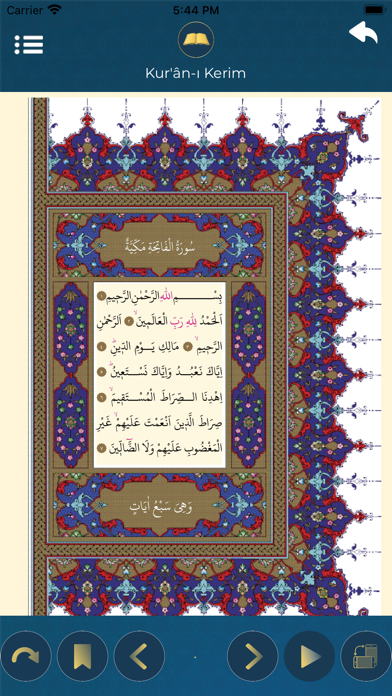 Carrier 5:44 PM
Kur'ân-ı Kerim
سُورَةُ الْفَاتِحَةِ مَكِّيَّةٌ
بِسْــــمِ اللّٰهِ الرَّحْمٰنِ الرَّح۪يمِ ١
اَلْحَمْدُ لِلّٰهِ رَبِّ الْعَالَم۪ينَۙ ٢ اَلرَّحْمٰنِ
الرَّح۪يمِۙ ٣ مَالِكِ يَوْمِ الدّ۪ينِۜ ٤
اِيَّاكَ نَعْبُدُ وَاِيَّاكَ نَسْتَع۪ينُۜ ٥
اِهْدِنَا الصِّرَاطَ الْمُسْتَق۪يمَۙ ٦
صِرَاطَ الَّذ۪ينَ اَنْعَمْتَ عَلَيْهِمْۙ غَيْرِ
الْمَغْضُوبِ عَلَيْهِمْ وَلَا الضَّٓالّ۪ينَ ٧
وَهِيَ سَبْعُ اٰيَاتٍ